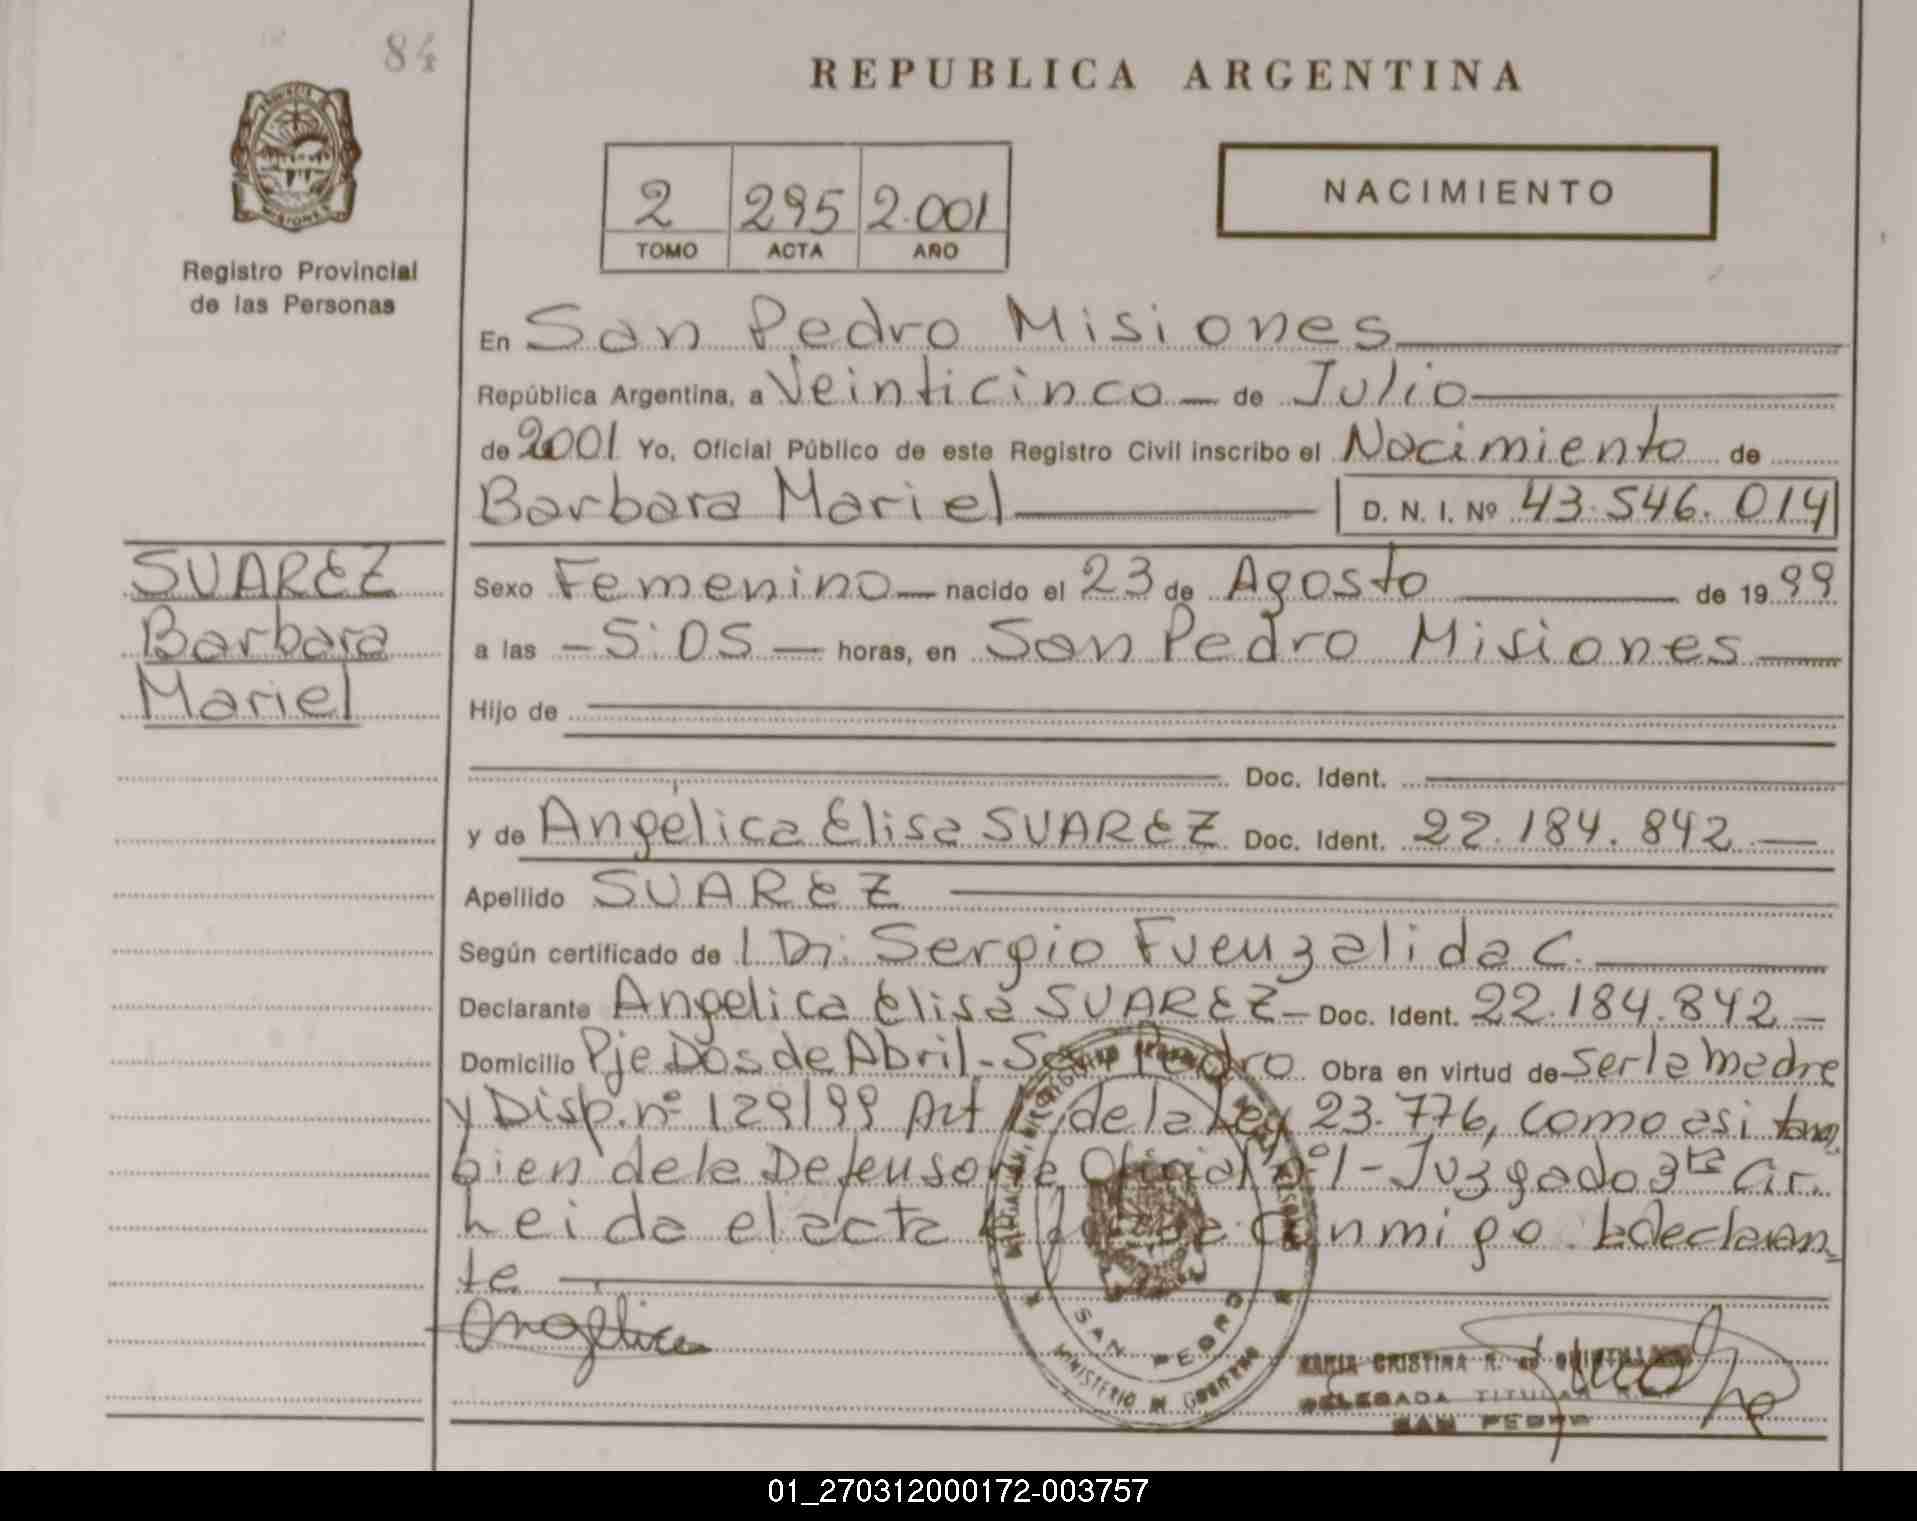 84
REPUBLICA ARGENTINA
MISIONES
2 295 2.001
TOMO ACTA AÑO
NACIMIENTO
Registro Provincial
de las Personas
En San Pedro Misiones
República Argentina, a Veinticinco de Julio
de 2001 Yo, Oficial Público de este Registro Civil inscribo el Nacimiento de
Barbara Mariel D. N. I. Nº 43.546.014
SUAREZ
Barbara
Mariel
Sexo Femenino nacido el 23 de Agosto de 1999
a las - 5:05 - horas, en San Pedro Misiones
Hijo de
Doc. Ident.
y de Angélica Elisa SUAREZ Doc. Ident. 22.184.842
Apellido SUAREZ
Según certificado de Sergio Fuenzalida C.
Declarante Angelica Elisa SUAREZ Doc. Ident. 22.184.842
Domicilio Pje Dos de Abril - San Pedro Obra en virtud de ser la madre
y Disp. nº 129/99 Art de la Ley 23.776, como asi tam
bien de la Defensoria Oficial nº1 - Juzgado 3ra Cir.
Leida el acta conmigo la declaran
te
Angélica
SAN PEDRO
MINISTERIO DE GOBIERNO
MARIA CRISTINA R. de
DELEGADA TITULAR
SAN PEDRO
01_270312000172-003757